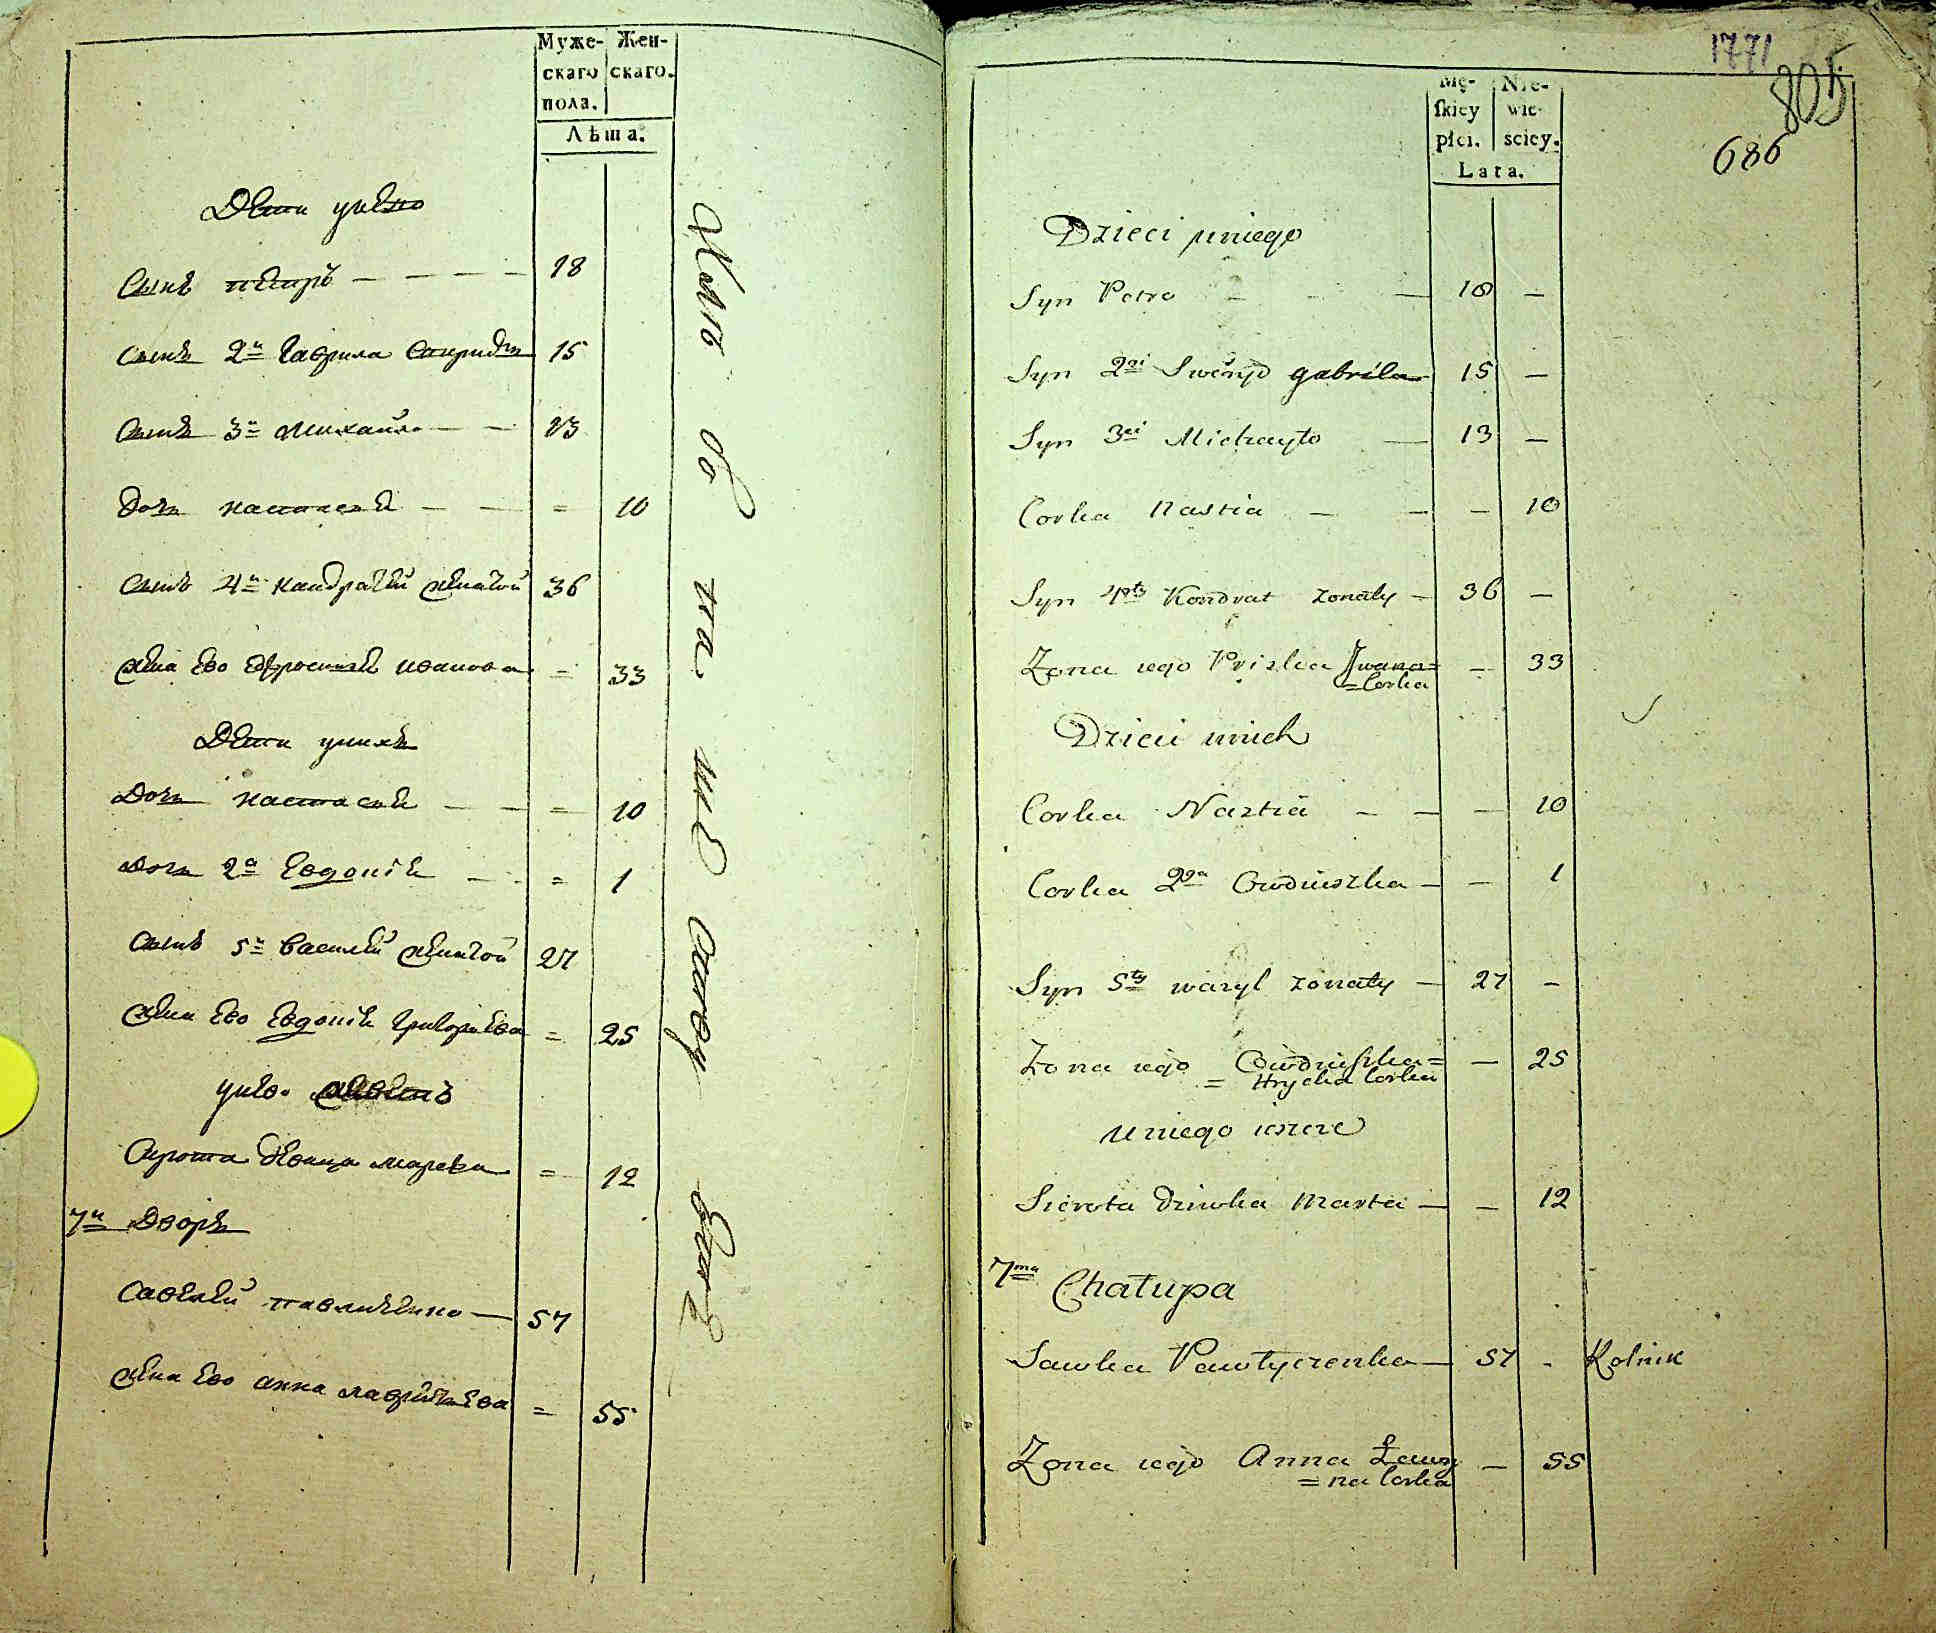 Муже- | Жен-
скаго | скаго.
пола.
Лѣта.
Дѣти унево
Сынъ пѣтръ — — — — 18
Сынъ 2й Гаврила 15
Сынъ 3й Михайло — — 13
Дочь настасья — — = 10
Сынъ 4й Кандратѣй женатой 36
жена Ево Ефросинья иванова = 33
Дѣти унихъ
Дочь настасья — — = 10
Дочь 2я Евдокія — — = 1
Сынъ 5й Василѣй женатой 27
жена Ево Евдокія Григорьева = 25
унево живетъ
Сирота девица марфа = 12
7й Дворъ
Савѣлѣй павличенко — 57
жена Ево анна = 55
1771
805
686
Mę- | Nie-
skiey | wie-
płci. | sciey.
Lata.
Dzieci uniego
Syn Petro — — 18 —
Syn 2gi gabrila 15 —
Syn 3ci Michayło — 13 —
Corka Nastia — — — 10
Syn 4ty Kondrat zonaty — 36 —
Zona iego Priska Jwana= — 33
=Corka
Dzieci unich
Corka Nastia — — — 10
Corka 2ga Owdiuszka — — 1
Syn 5ty wasyl zonaty — 27 —
Zona iego Owdiuszka= — 25
= Hrycka Corka
Uniego ieszcze
Sierota dziwka Marta — — 12
7ma Chałupa
Sawka Pawłyczenko — 57 - Rolnik
Zona iego Anna — 55
= na Corka